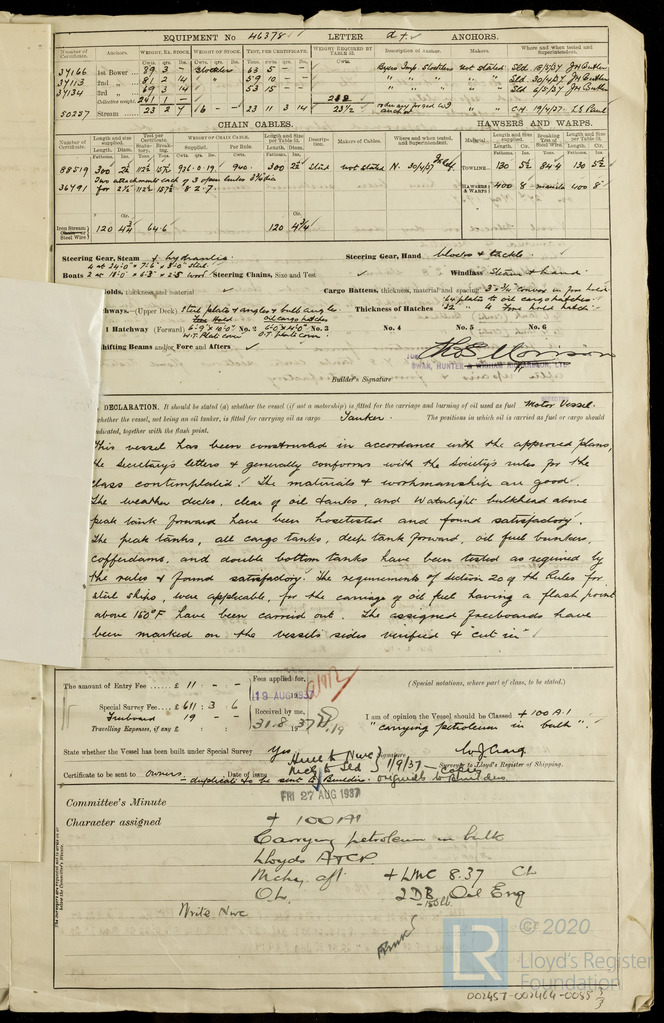 EQUIPMENT No 46378 LETTER d † ANCHORS.
Number of Certificate. Anchors. WEIGHT, EX. STOCK. WEIGHT OF STOCK. TEST, PER CERTIFICATE. WEIGHT REQUIRED BY TABLE 53. Description of Anchor. Makers. Where and when tested and Superintendent.
Cwts. qrs. lbs. Cwts. qrs. lbs. Tons. cwts. qrs. lbs. Cwts.
37166 1st Bower 89 3 - Stockless 63 5 - - Byers Imp. Stockless not stated Sld 18/5/37 J H Butler
37113 2nd " 81 2 14 " 59 10 - - " " " " Sld. 30/4/37 J H Butler
37134 3rd " 69 3 14 " 53 15 - - " " " " Sld. 6/5/37 J H Butler
Collective weight 241 1 -
50257 Stream 23 2 7 6 - - 23 11 3 14 23½ ordinary forged W.I. anchor " C.H. 19/4/37
CHAIN CABLES. HAWSERS AND WARPS.
Number of Certificate. Length and size supplied. Test per Certificate. WEIGHT OF CHAIN CABLE. Length and Size per Table 53. Description. Makers of Cables. Where and when tested, and Superintendent. Material. Length and size supplied. Breaking Test of Steel Wire. Length and Size per Table 53.
Supplied. Per Rule.
88519 300 2½ 112½ 157½ 926.0.19 940. 300 2½ Stud not stated N. 30/4/37 TOWLINE 130 5½ 84.4 130 5½
Two attachments each of 3 open links
36491 for 2½ 112½ 157½ 8.2.7. HAWSERS & WARPS 400 8 manila 400 8"
Iron Stream or Steel Wire 120 4¾ 64.6 120 4¾
Steering Gear, Steam & hydraulic Steering Gear, Hand blocks & tackle.
Boats 4 at 24'.0" x 7'.6" x 3'.0" Steel.
2 at 18'.0" x 6'.3" x 2'.5 wood. Steering Chains, Size and Test Windlass Steam & hand
olds, thickness and material Cargo Battens, thickness, material and spacing
tchways.—(Upper Deck) Steel plate & angles & bulb angles Thickness of Hatches
Fore Hold. Oil cargo hatches
1 Hatchway (Forward) 6'.9" x 10'.0" No. 2 6'.0" x 4'.0" No. 3 No. 4 No. 5 No. 6
W.T. Plate cover O.T. plate cover.
Shifting Beams and/or Fore and Afters
SWAN, HUNTER & WIGHAM RICHARDSON, LTD.
Builder's Signature
DECLARATION. It should be stated (a) whether the vessel (if not a motorship) is fitted for the carriage and burning of oil used as fuel Motor Vessel.
whether the vessel, not being an oil tanker, is fitted for carrying oil as cargo Tanker. The positions in which oil is carried as fuel or cargo should
indicated, together with the flash point.
This vessel has been constructed in accordance with the approved plans,
the Secretary's letters & generally conforms with the Society's rules for the
class contemplated. The materials & workmanship are good.
The weather decks, clear of oil tanks, and Watertight bulkhead above
peak tank forward have been hosetested and found satisfactory.
The peak tanks, all cargo tanks, deep tank forward, oil fuel bunkers,
cofferdams, and double bottom tanks have been tested as required by
the rules & found satisfactory. The requirements of Section 20 of the Rules for
steel ships, were applicable, for the carriage of oil fuel having a flash point
above 150°F have been carried out. The assigned freeboards have
been marked on the vessel's sides verified & "cut in"
The amount of Entry Fee ...... £ 11 : - : -
Special Survey Fee.... £ 611 : 3 : 6
Freeboard 19 - -
Travelling Expenses, if any £ : :
Fees applied for,
19 AUG 1937
Received by me,
31.8.37
(Special notations, where part of class, to be stated.)
I am of opinion the Vessel should be Classed + 100 A.1
"carrying petroleum in bulk".
State whether the Vessel has been built under Special Survey Yes Signature W J Craig
Surveyor to Lloyd's Register of Shipping.
Certificate to be sent to Owners Date of issue 1/9/37
— duplicate to be sent to Builders. originals to Builders
FRI 27 AUG 1937
Committee's Minute
Character assigned + 100 A1
Carrying petroleum in bulk
Lloyds A & CP.
Mchy. aft + LMC 8.37 CL
O.L. 2DB - 150 lb. Oil Eng
Write Nwc
LR
© 2020
Lloyd's Register
Foundation
002457-002464-0055 2/3